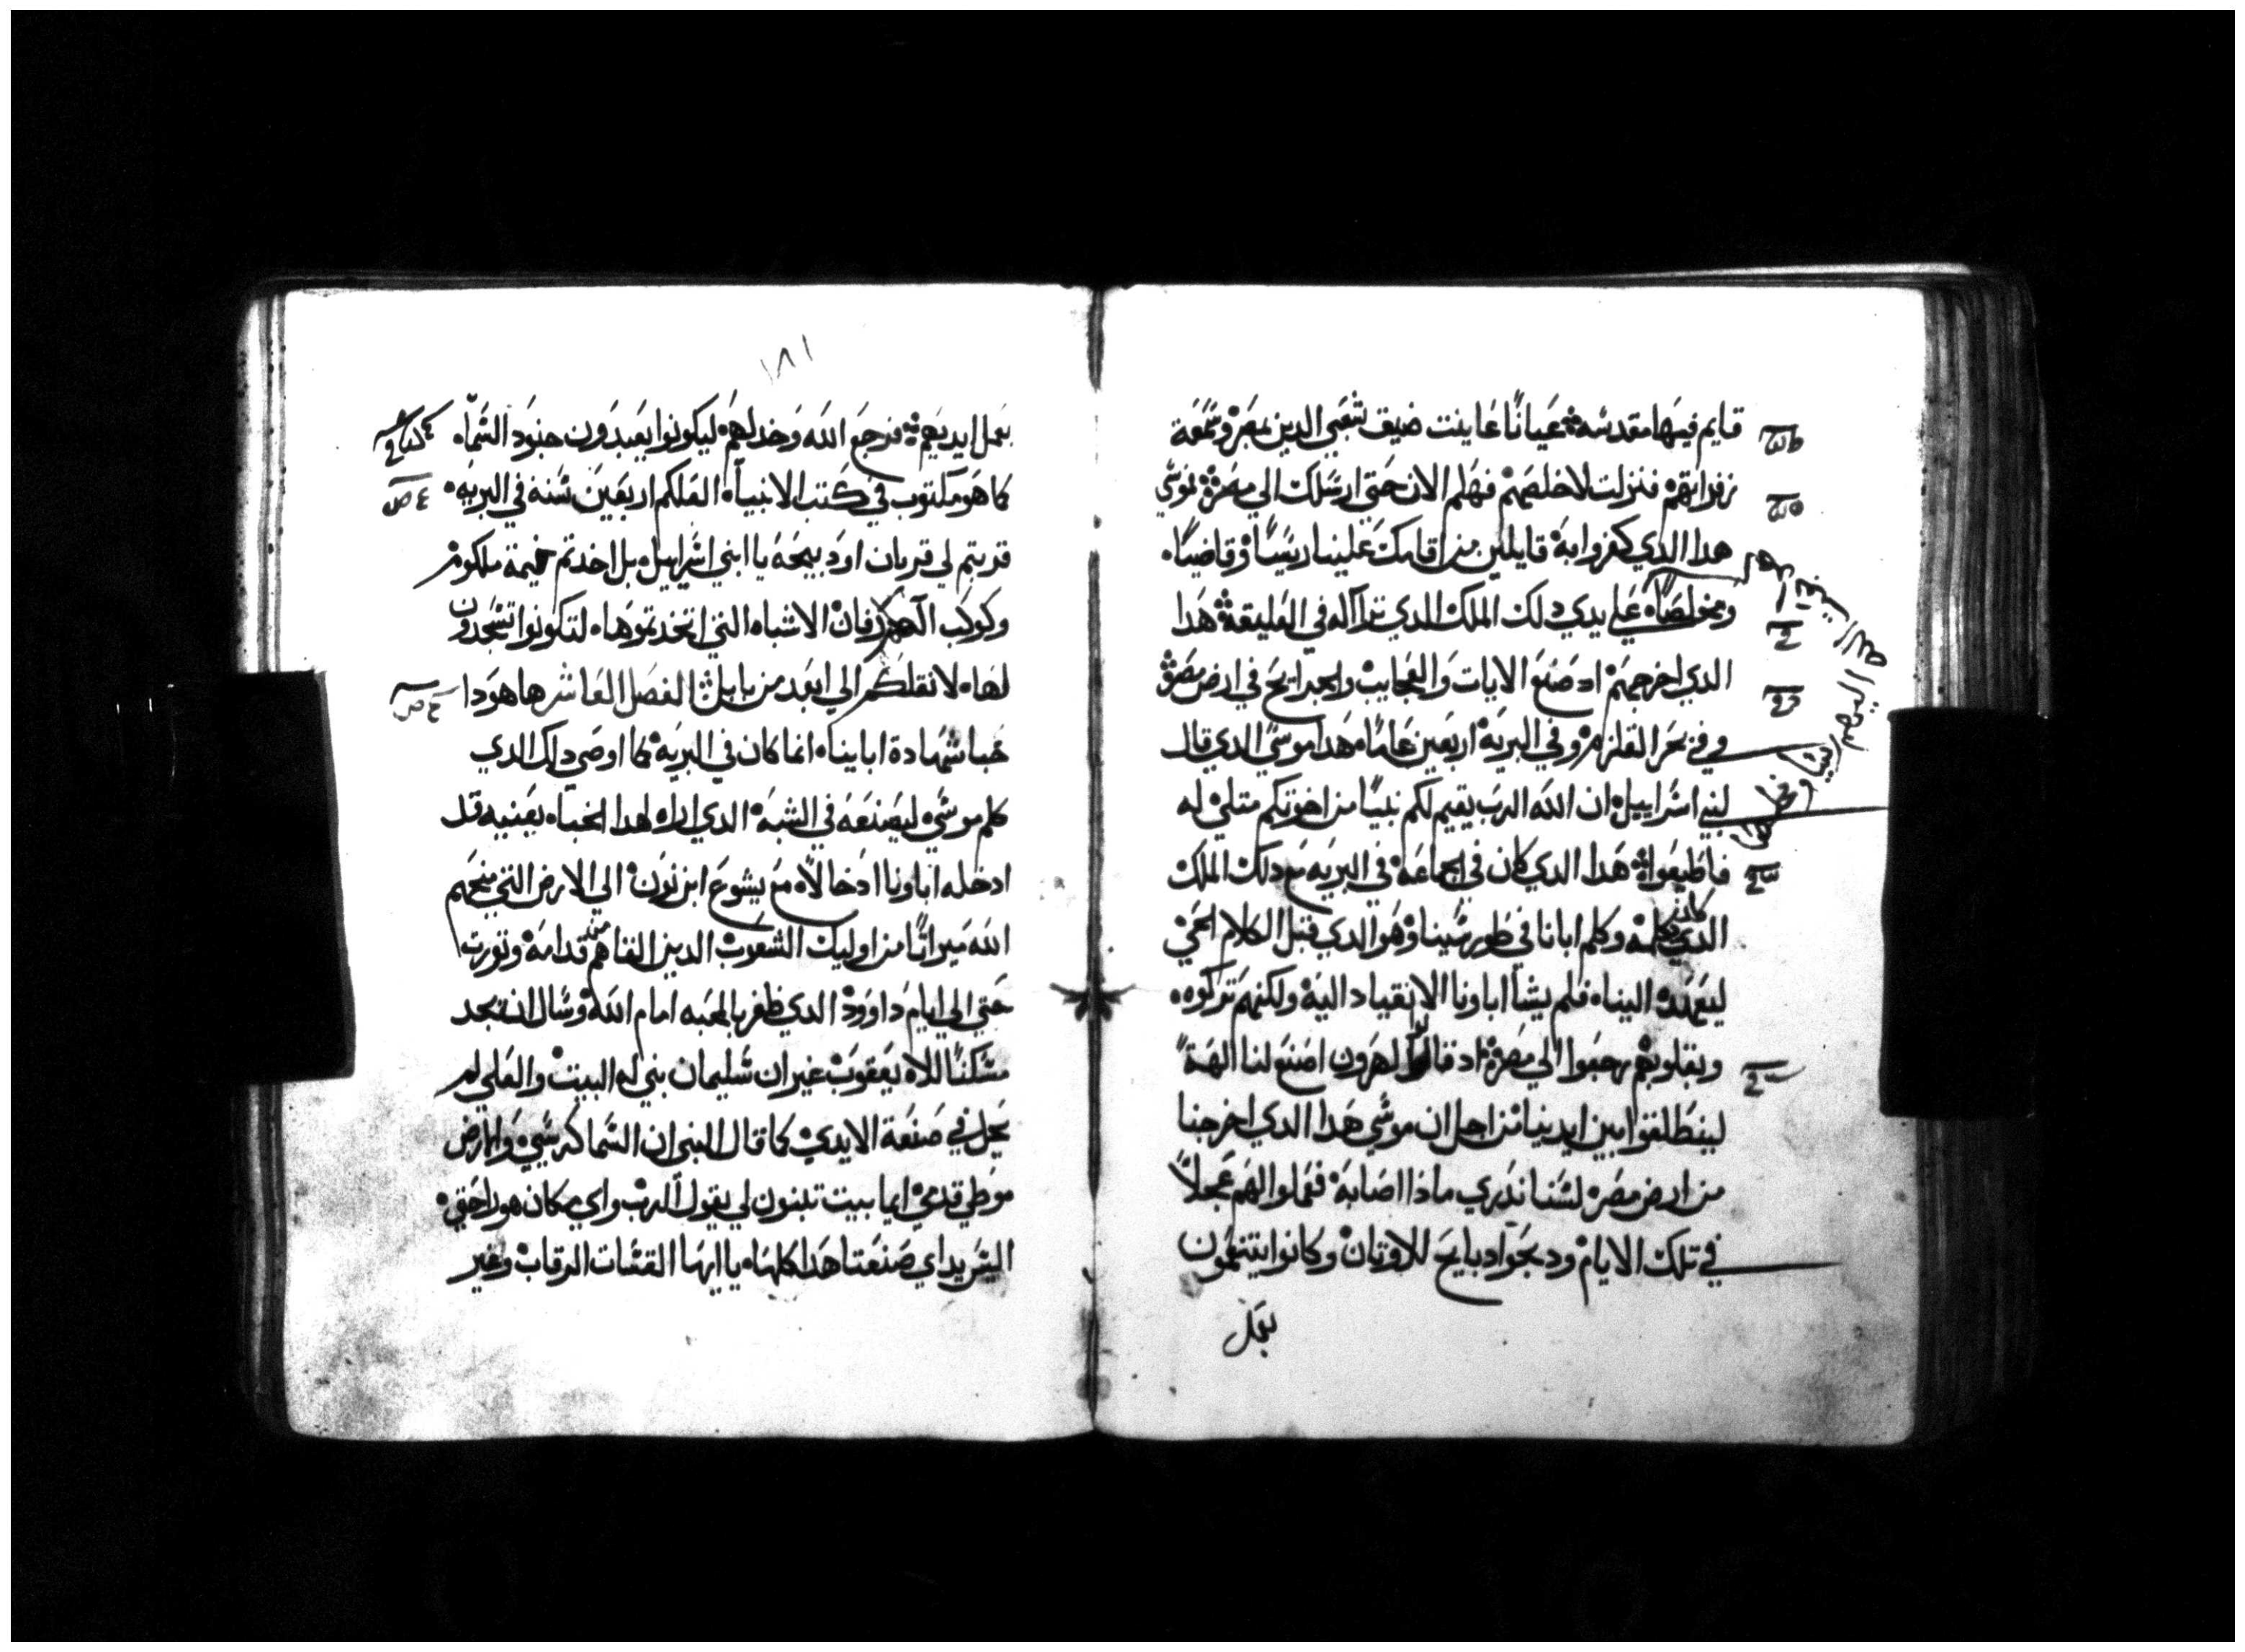 قايم فيها مقدسه عيانًا عاينت ضيق شعبي الدين بمصر وسمعة
زفراتهم فنزلت لاخلصهم فهلم الان حتى ارسلك الي مصر موسي
هدا الدي كفروا به قايلين من اقامك علينا رييسًا وقاضيًا
ومخلصًا علي يدي دلك الملك الدي تراآله في العليقة هدا
الدي اخرجهم اد صنع الايات والعجايب والجرايح في ارض مصر
وفي بحر القلزم وفي البريه اربعين عامًا هدا موسي الدي قال
لبني اسراييل ان الله الرب يقيم لكم نبيًا من اخوتكم متلي له
فاطيعوا هدا الدي كان في الجماعة في البريه مع دلك الملك
الدي كان كلمه وكلم ابانا في طور سينا وهو الدي قبل الكلام الحي
ليعهده الينا فلم يشا اباونا الانقياد اليه ولكنهم تركوه
وبقلوبهم رجعوا الي مصر اد قالوا لهرون اصنع لنا الهة
لينطلقوا بين ايدينا من اجل ان موسي هدا الدي اخرجنا
من ارض مصر لسنا ندري مادا اصابه فعملوا لهم عجلاً
في تلك الايام ودبحوا دبايح للاوتان وكانوا يتنعمون
بعمل
١٨١
بعمل ايديهم فرجع الله وخدلهم ليكونوا يعبدون جنود السماء
كما هو مكتوب في كتب الانبياء العلكم اربعين سنة في البريه
قربتم لي قربان او دبيحة يا ابني اسراييل بل اخدتم خيمة ملكوم
وكوكب الهكم رفان الاشباه التي اتخدتموها لتكونوا تسجدون
لها لانقلنكم الي ابعد من بابل الفصل العاشر ها هودا
خبا شهادة اباينا انما كان في البريه كما اوصي داك الدي
كلم موسي ليصنعه في الشبه الدي اراه لهدا الخباء بعنيه قد
ادخله اباونا ادخالاً مع يشوع ابن نون الي الارض التي منحهم
الله ميراثًا من اوليك الشعوب الدين القاهم من قدامه وتورت
حتي الي ايام داوود الدي ظفر بالمحبه امام الله وسال ان يجد
مسكنًا للاه يعقوب غير ان سليمان بني له البيت والعلي لم
يحل في صنعة الايدي كما قال النبي ان السما كرسيي والارض
موطي قدمي ايما بيت تبنون لي يقول الرب واي مكان هو راحتي
اليس يداي صنعتا هدا كلها يا ايها القسات الرقاب وغير